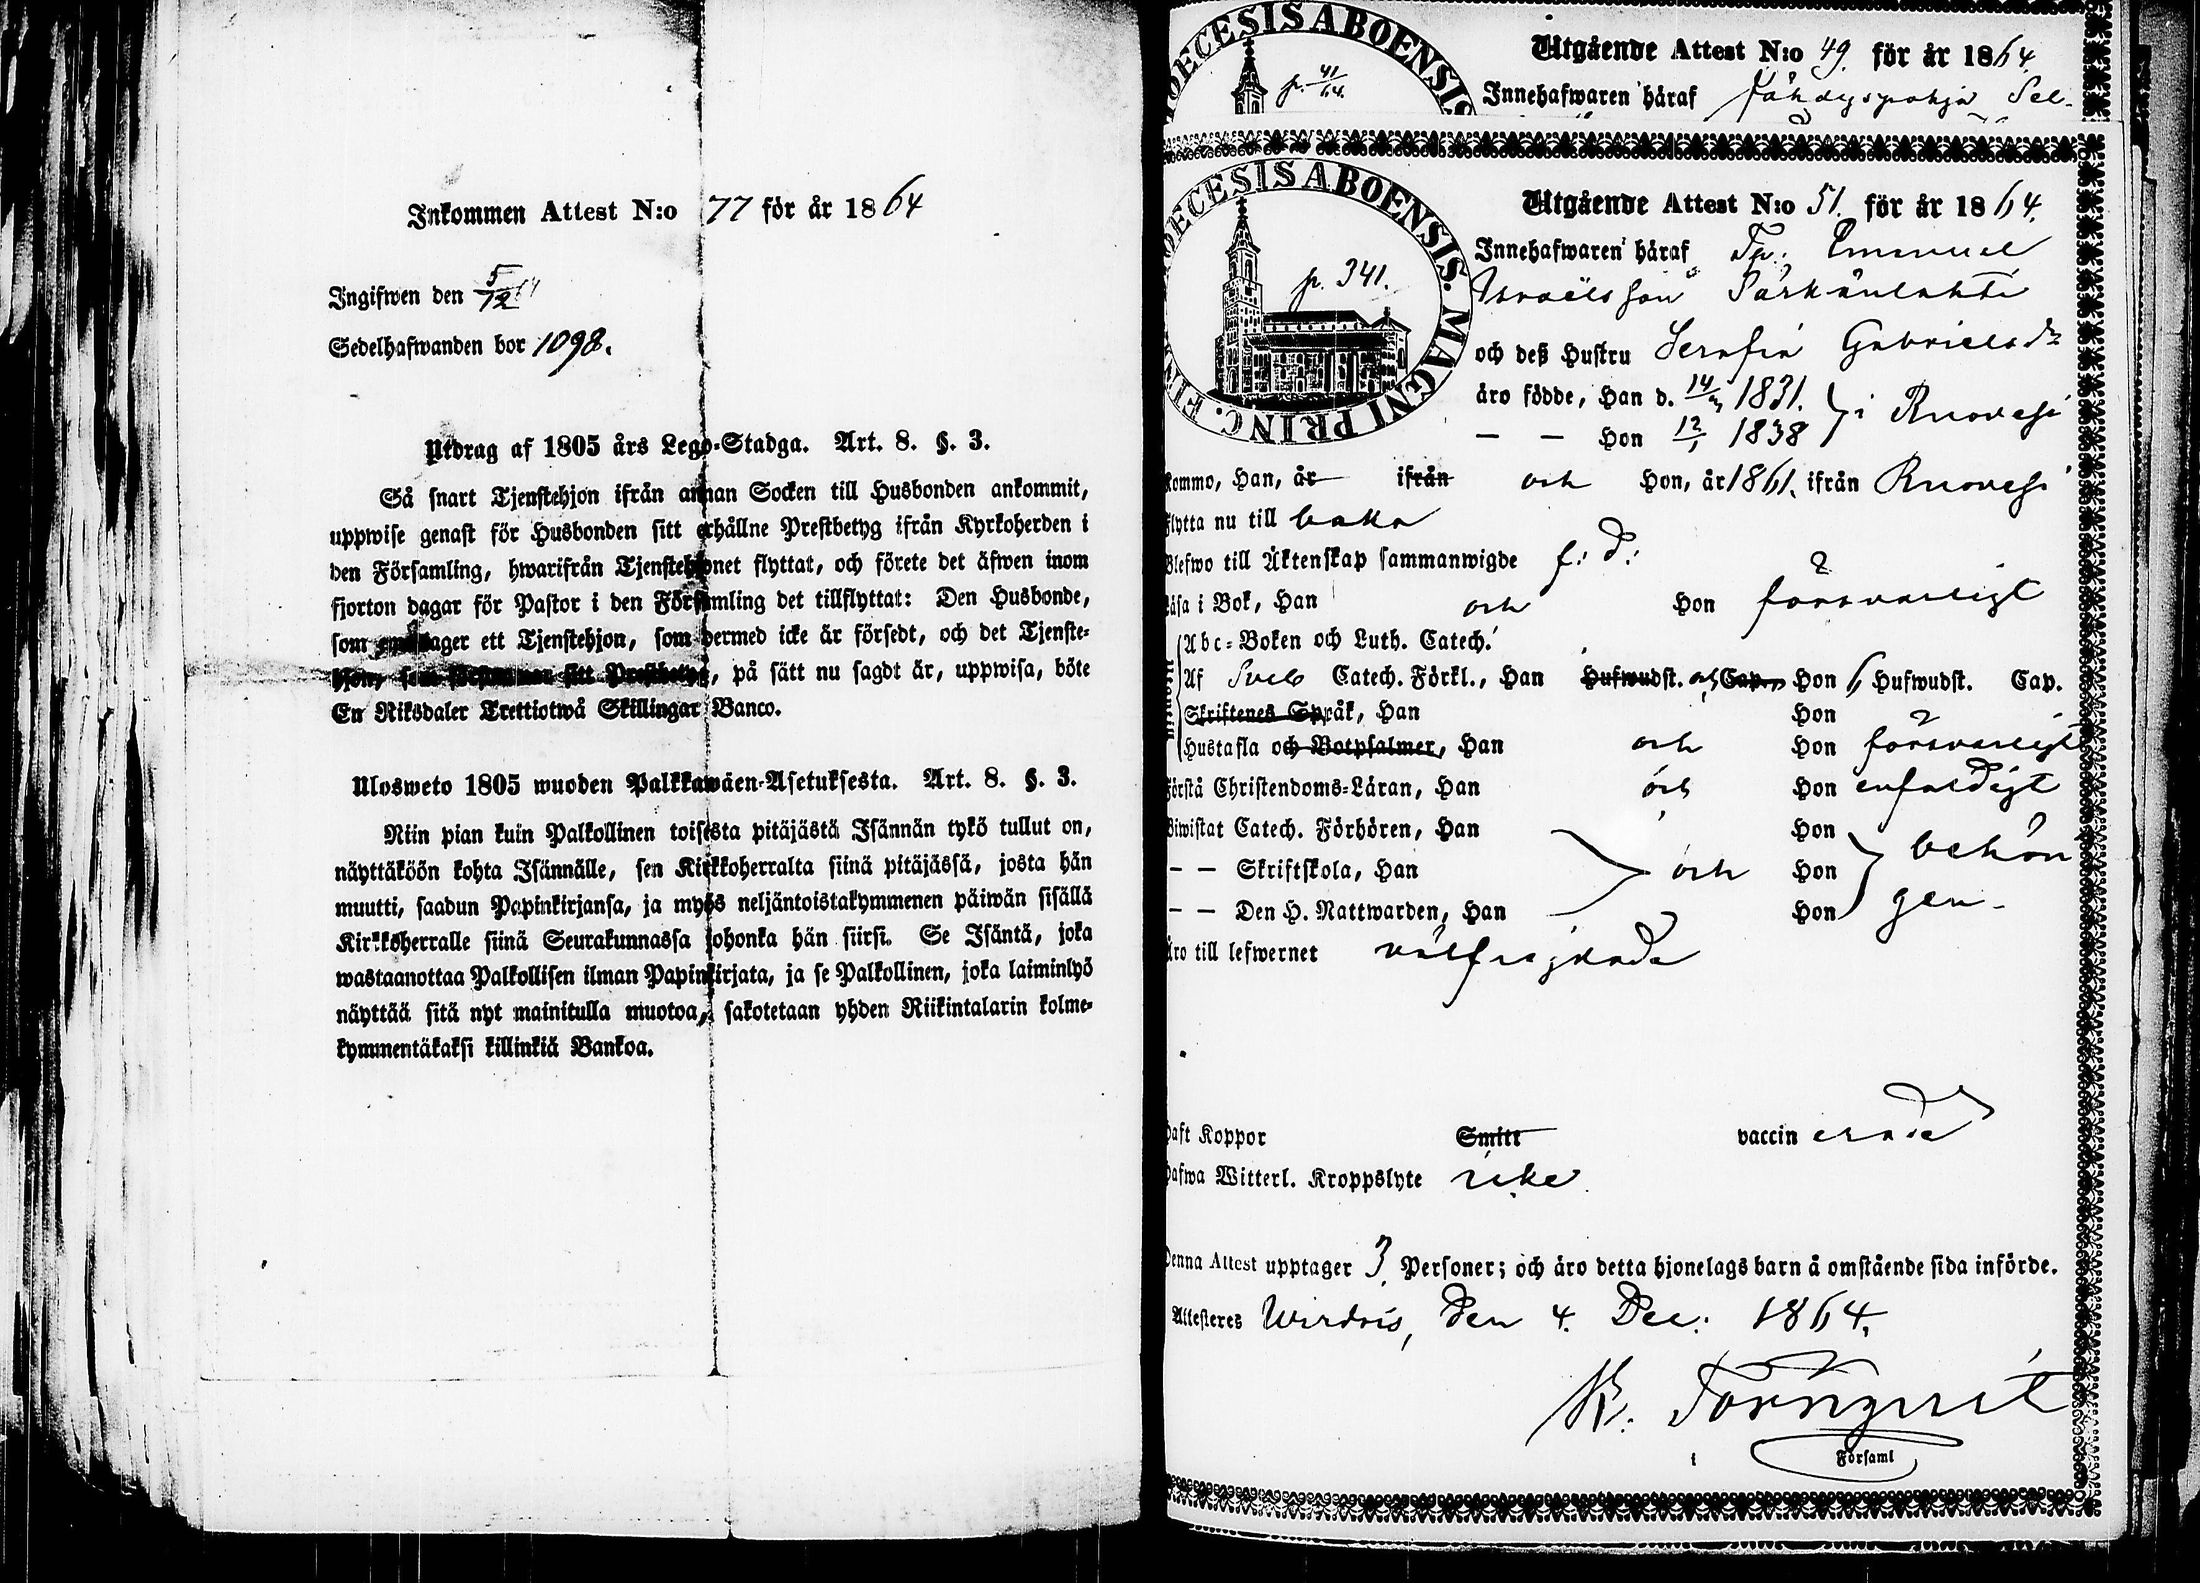 Inkommen Attest N:o 77 för år 1864
Ingifwen den 5/12
Sedelhafwanden bor 1098.
Utdrag af 1805 års Lego-Stadga. Art. 8. §. 3.
Så snart Tjenstehjon ifrån annan Socken till Husbonden ankommit,
uppwise genast för Husbonden sitt erhållne Prestbetyg ifrån Kyrkoherden i
den Församling, hwarifrån Tjenstehjonet flyttat, och förete det äfwen inom
fjorton dagar för Pastor i den Församling det tillflyttat: Den Husbonde,
som emottager ett Tjenstehjon, som dermed icke är försedt, och det Tjenste-
hjon, som försummar sitt Prestbetyg, på sätt nu sagdt är, uppwisa, böte
En Riksdaler Trettiotwå Skillingar Banco.
Ulosweto 1805 wuoden Palkkawäen-Asetuksesta. Art. 8. §. 3.
Niin pian kuin Palkollinen toisesta pitäjästä Isännän tykö tullut on,
näyttäköön kohta Isännälle, sen Kirkkoherralta siinä pitäjässä, josta hän
muutti, saadun Papinkirjansa, ja myös neljäntoistakymmenen päiwän sisällä
Kirkkoherralle siinä Seurakunnassa johonka hän siirsi. Se Isäntä, joka
wastaanottaa Palkollisen ilman Papinkirjata, ja se Palkollinen, joka laiminlyö
näyttää sitä nyt mainitulla muotoa, sakotetaan yhden Riikintalarin kolme-
kymmentäkaksi killinkiä Bankoa.
DIOECESIS ABOENSIS.
p. 41/14.
Utgående Attest N:o 49. för år 1864.
Innehafwaren häraf
DIOECESIS ABOENSIS. MAGNI PRINC. FIN
p. 341.
Utgående Attest N:o 51. för år 1864.
Innehafwaren häraf Tp. Emanuel
Israelsson Särkänlahti
och deß Hustru Serafia Gabrielsdr
äro födde, Han d. 14/ 1831. } i Ruovesi
— — Hon 12/1 1838
Kommo, Han, år ifrån och Hon, år 1861. ifrån Ruovesi
Flytta nu till baka
Blefwo till Äktenskap sammanwigde f: d:
Läsa i Bok, Han och Hon försvarligt
Abc-Boken och Luth. Catech.
Af Sveb Catech. Förkl., Han Hufwudst. och Cap., Hon 6 Hufwudst. Cap.
Skriftenes Språk, Han Hon
Hustafla och Botpsalmer, Han och Hon försvarligt
Förstå Christendoms-Läran, Han och Hon enfaldigt
Biwistat Catech. Förhören, Han Hon
— — Skriftskola, Han och Hon behöri
— — Den H. Nattwarden, Han Hon gen
Äro till lefwernet välfrejdade
Haft Koppor Smitt vaccin erade
Hafwa Witterl. Kroppslyte icke
Denna Attest upptager 3 Personer; och äro detta hjonelags barn å omstående sida införde.
Attesteres Wirdois, den 4. Dec: 1864.
K. Törnqvist
i Församl